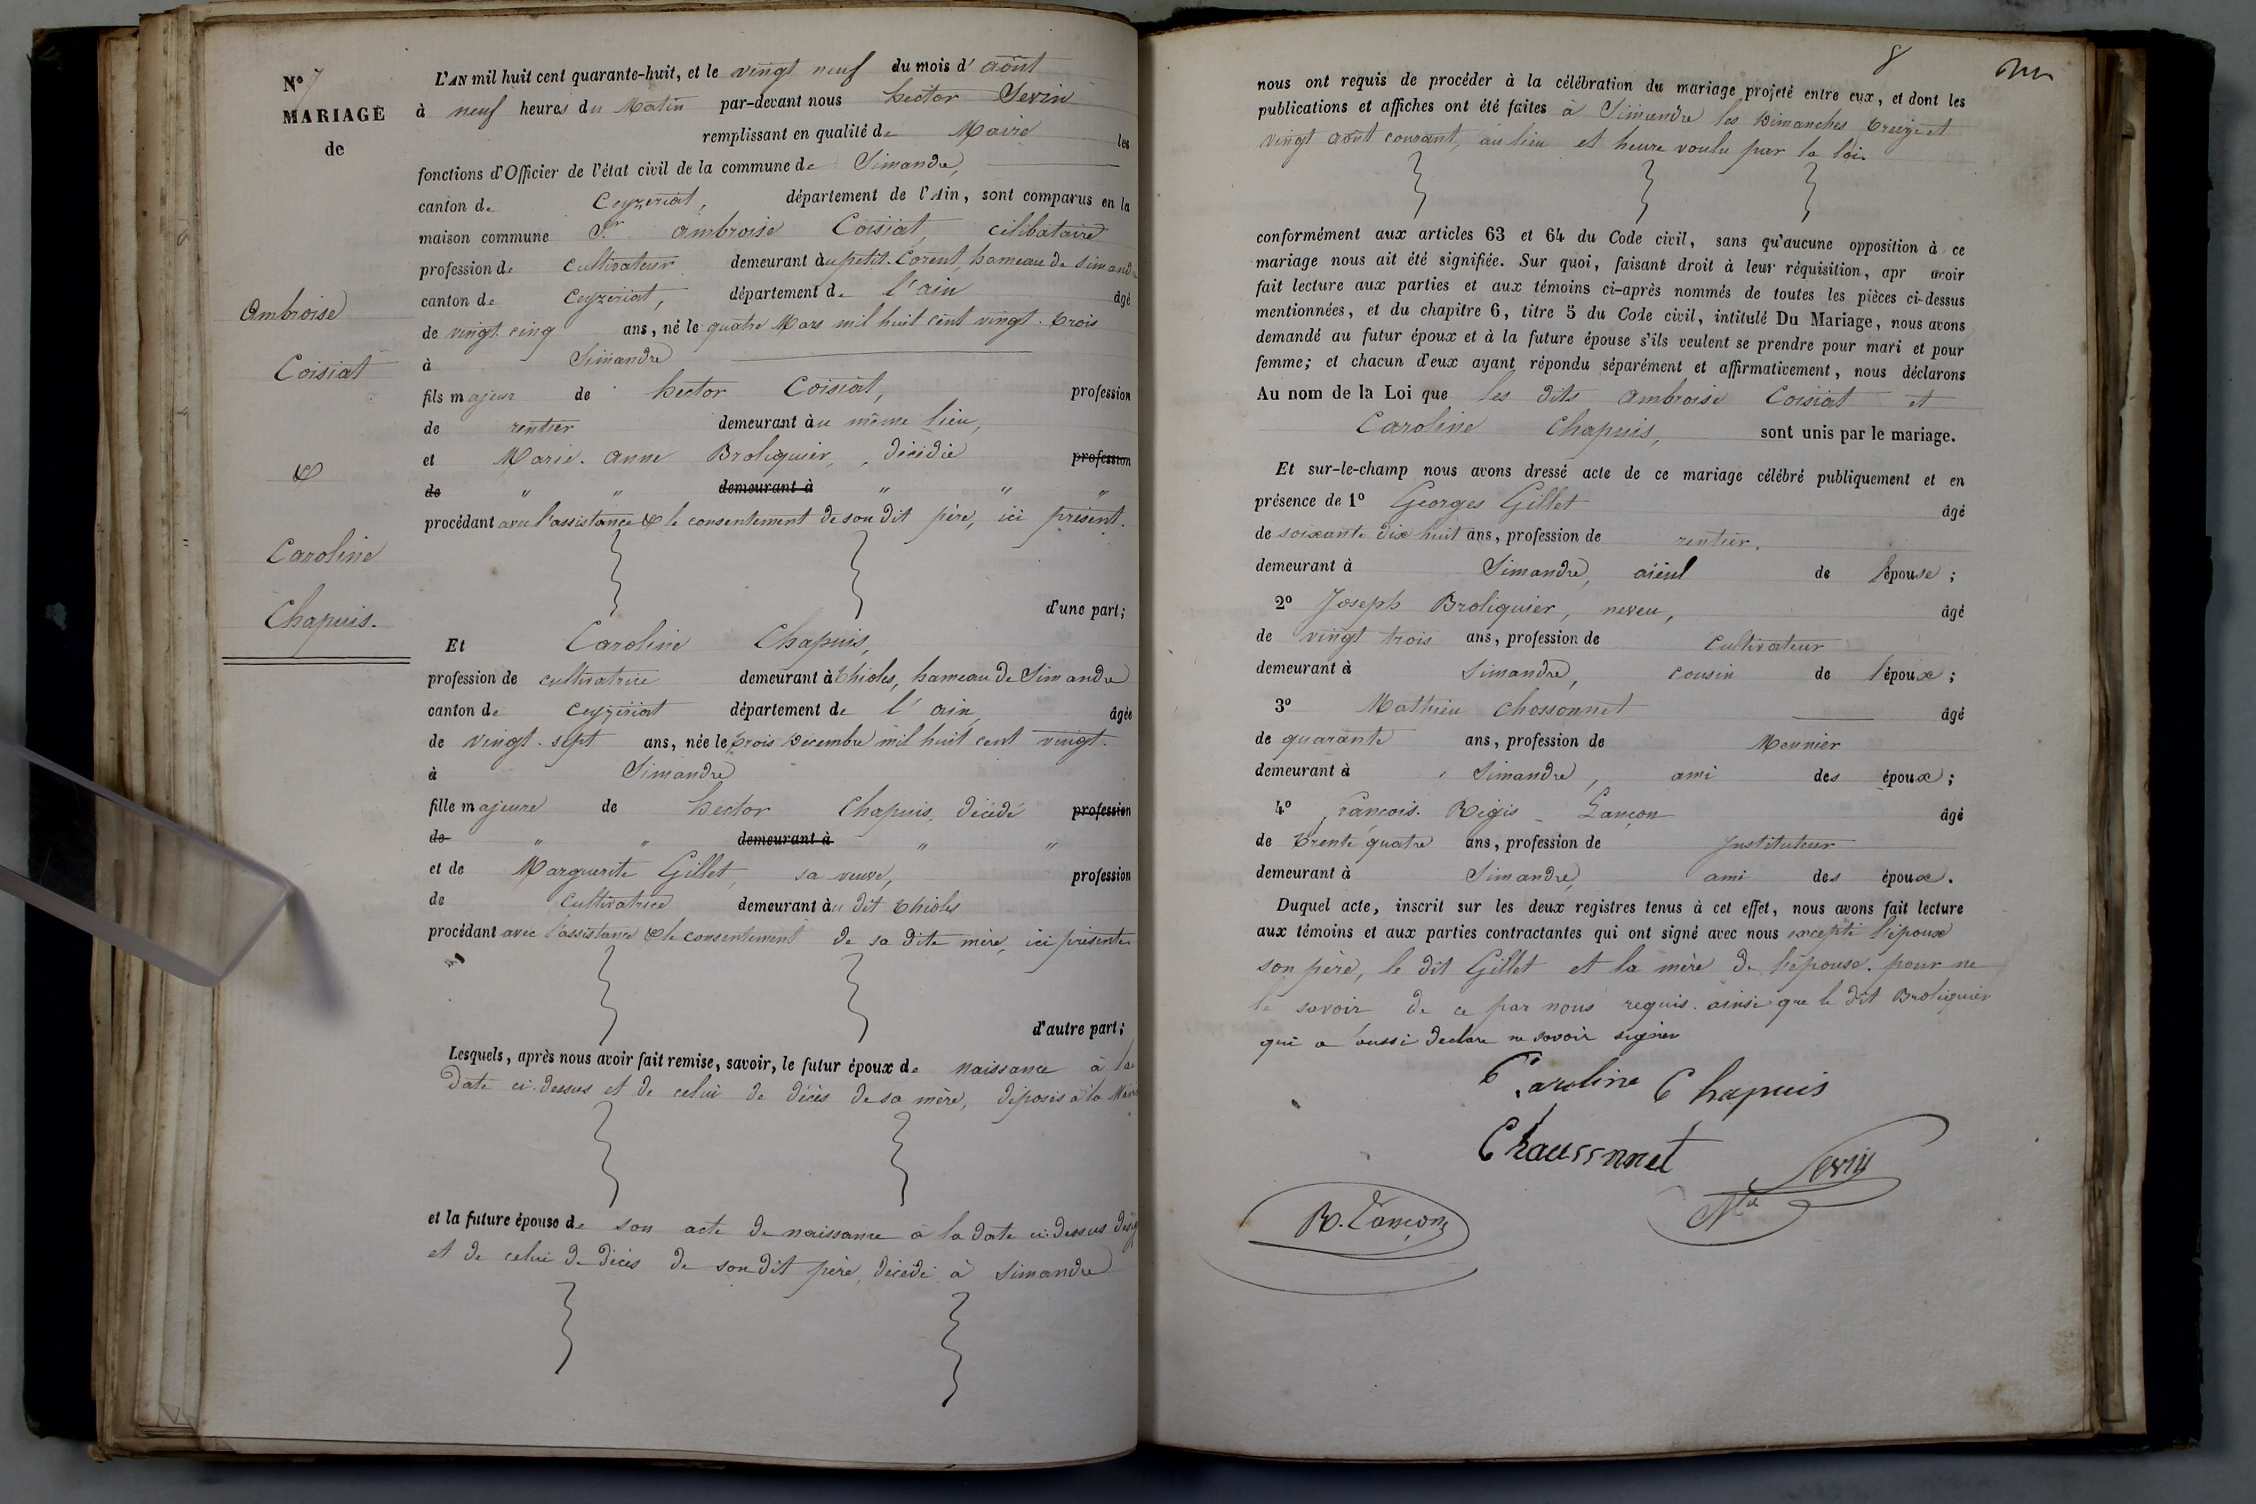 N° 7
MARIAGE
de
Ambroise
Coisiat
&
Caroline
Chapuis.
L'AN mil huit cent quarante-huit, et le vingt neuf du mois d' août
à neuf heures du Matin par-devant nous hector Sevin
remplissant en qualité de Maire les
fonctions d'Officier de l'état civil de la commune de Simandre,
canton de Ceyzeriat, département de l'Ain, sont comparus en la
maison commune Sr ambroise Coisiat, célibataire
profession de cultivateur demeurant au petit. Corent, hameau de Simandre
canton de Ceyzeriat, département de l'ain âgé
de vingt. cinq ans, né le quatre Mars mil huit cent vingt. trois
à Simandre
fils majeur de hector Coisiat, profession
de rentier demeurant au même lieu,
et Marie. anne Broliquier, décédée profession
de " " demeurant à " " "
procédant avec l'assistance & le consentement de son dit père, ici présent.
d'une part;
Et Caroline Chapuis,
profession de cultivatrice demeurant à thioles, hameau de Simandre
canton de Ceyzeriat département de l'ain, âgée
de vingt. sept ans, née le trois Décembre mil huit cent vingt.
à Simandre
fille majeure de hector Chapuis, décédé profession
de " " demeurant à " "
et de Marguerite Gillet, sa veuve, profession
de cultivatrice demeurant au dit thioles
procédant avec l'assistance & le consentement de sa dite mère, ici présente
d'autre part;
Lesquels, après nous avoir fait remise, savoir, le futur époux de naissance à la
date ci-dessus et de celui de décès de sa mère, déposés à la Mairie
et la future épouse de son acte de naissance à la date ci-dessus
et de celui de décès de son dit père, décédé à Simandre
8
nous ont requis de procéder à la célébration du mariage projeté entre eux, et dont les
publications et affiches ont été faites à Simandre les Dimanches treize et
vingt août courant, au lieu et heure voulu par la loi.
conformément aux articles 63 et 64 du Code civil, sans qu'aucune opposition à ce
mariage nous ait été signifiée. Sur quoi, faisant droit à leur réquisition, apr avoir
fait lecture aux parties et aux témoins ci-après nommés de toutes les pièces ci-dessus
mentionnées, et du chapitre 6, titre 5 du Code civil, intitulé Du Mariage, nous avons
demandé au futur époux et à la future épouse s'ils veulent se prendre pour mari et pour
femme; et chacun d'eux ayant répondu séparément et affirmativement, nous déclarons
Au nom de la Loi que les dits ambroise Coisiat et
Caroline Chapuis, sont unis par le mariage.
Et sur-le-champ nous avons dressé acte de ce mariage célébré publiquement et en
présence de 1° Georges Gillet âgé
de soixante dix huit ans, profession de rentier.
demeurant à Simandre, aïeul de l'épouse;
2° Joseph Broliquier, neveu, âgé
de vingt trois ans, profession de cultivateur
demeurant à Simandre, cousin de l'époux;
3° Mathieu Chossonnet âgé
de quarante ans, profession de Meunier
demeurant à Simandre, ami des époux;
4° françois. Régis Lançon âgé
de trente quatre ans, profession de Instituteur
demeurant à Simandre, ami des époux.
Duquel acte, inscrit sur les deux registres tenus à cet effet, nous avons fait lecture
aux témoins et aux parties contractantes qui ont signé avec nous excepté l'époux
son père, le dit Gillet et la mère de l'épouse. pour ne
le savoir de ce par nous requis. ainsi que le dit Broliquier
qui a aussi declare ne savoir signer
Caroline Chapuis
Chaussnnet
Sevin
Mre
R. Lançon